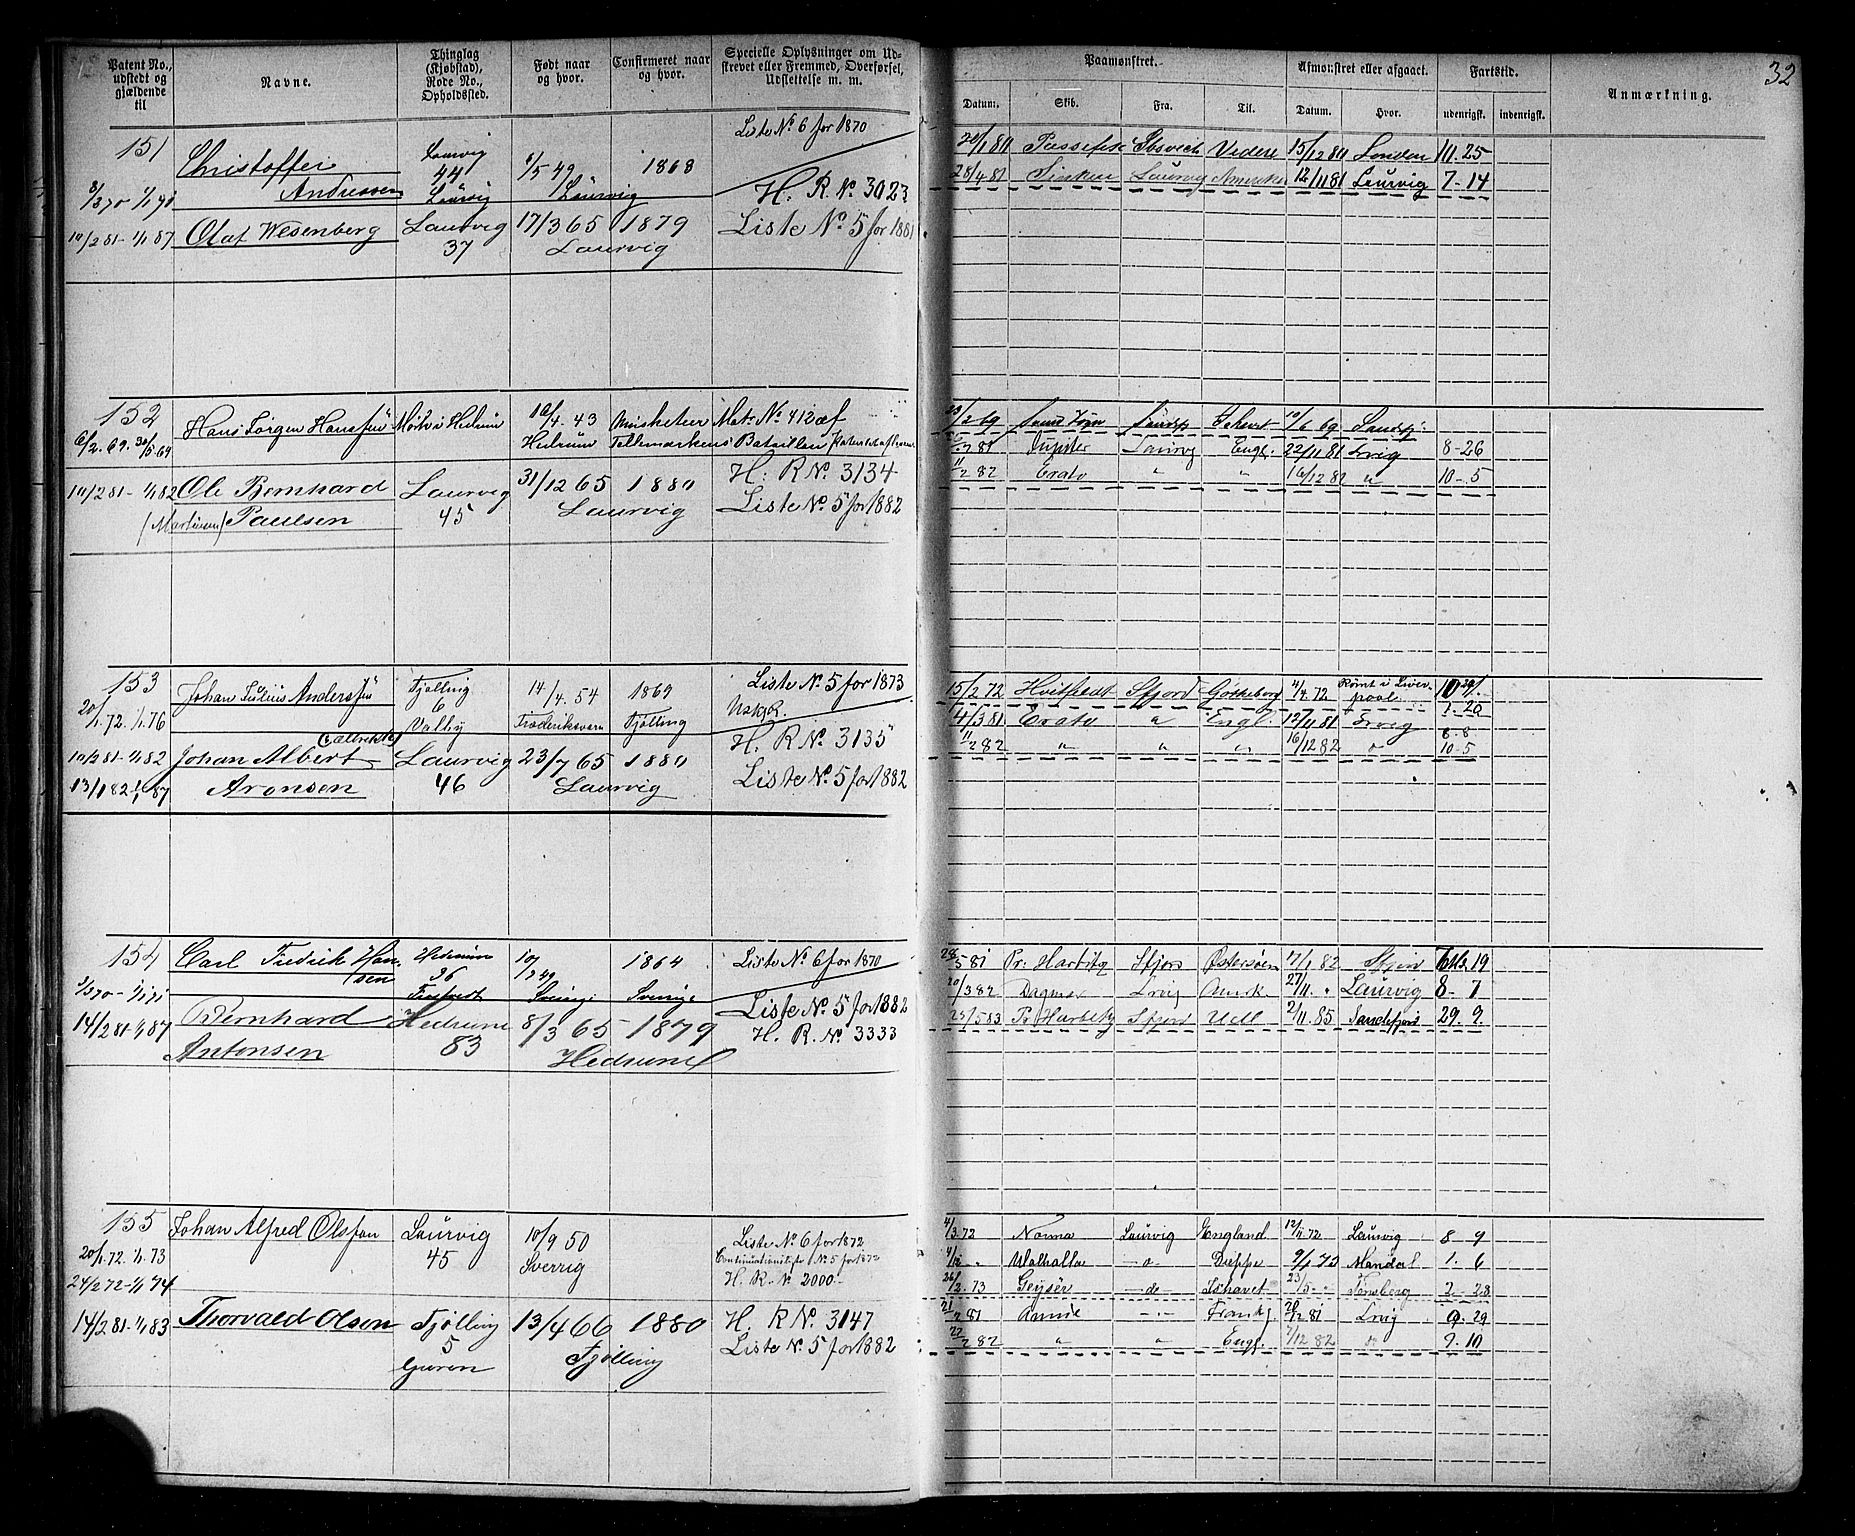 32
Patent No., udstedt og gjældende til
Navne.
Thinglag (Kjøbstad), Rode No., Opholdssted.
Født naar og hvor.
Confirmeret naar og hvor.
Specielle Oplysninger om Udskrevet eller Fremmed, Overførsel, Udslettelse m. m.
Paamønstret.
Afmønstret eller afgaaet.
Fartstid.
Anmærkning.
Datum.
Skib.
Fra.
Til.
Datum.
Hvor.
udenrigsk.
indenrigsk.
151
Christoffer
Andressen
Laurvig
44
Laurvig
1868
Laurvig
Liste No. 6 for 1870
H. R. No. 3023
20/1 80
Vidre
15/12 80 London 10. 25
28/4 81
Laurvig
12/11 81 Laurvig 7-14
10/2 81 - 1/1 87 Olaf Wesenberg Laurvig 17/3 65 1879 Liste No. 5 for 1881
37 Laurvig
152
Hans Jørgen Hansen
Hedrum
Matr. No. 412
6/2. 69.
Hedrum Tellemarkens Batallion
23/2 69
10/6 69
Jupiter
Engl. 22/11 81 Lrvig 8-26
11/2 82 Erato " " 16/12 82 " 10-5
10/2 81 - 1/1 82 Ole Bernhard Laurvig 31/12 65 1880 H. R No. 3134
(Martinsen) Paulsen 45 Laurvig Liste No. 5 for 1882
153
Johan Julius Anderssen
Fjølling
6
Valby
14/4. 54
Frederiksværn
1869
Fjølling
Liste No. 5 for 1873
20/1. 72. 1/1. 76
15/2 72 Hvitfeldt Sfjord Gøtheborg 4/4. 72 Rømt i Liverpool
4/3 81 Erato " Engl. 12/11 81 Lrvig 8-8
11/2 82 " " " 16/12 82 " 10-5
10/2 81 - 1/1 82 Johan Albert Laurvig 23/7 65 1880 H. R No. 3135
13/1 82 1/1 87 Aronsen 46 Laurvig Liste No. 5 for 1882
154
Carl Fredrik Hansen
Hedrum
36
1864
Sverige
Liste No. 6 for 1870
28/5 81 Pr. Harbitz Sfjord Østersøen 17/1 82 Sfjord
20/3 82 Dagmar Lrvig Amrk. 27/11. " Laurvig 8-7
25/5 83 Pr Harbitz Sfjord 2/11. 85 Sandefjord 29. 9
14/2 81 1/1 87 Bernhard Hedrum 8/3 65 1879 Liste No. 5 for 1882
Antonsen 83 Hedrum H. R. No. 3333
155
Johan Alfred Olssøn
Laurvig
45
10/9 50
Sverrig
Liste No. 6 for 1872
Continuationsliste No. 5 for 1872
H. R. No 2000.-
20/1. 72. 1/1. 73
24/2 72 - 1/1 74
4/3. 72 Norma Laurvig England 12/11. 72 Laurvig 8-9
Walhalla - " - Dieppe 9/1 73 Mandal 1. 6
26/2. 73 Geysér - do - Ishavet 23/5 - " Tønsberg 2-28
21/2 81 Annie - " - Frank. 20/12 81 Lrvig 9. 29
22/2 82 " " Engl. 7/12 82 do 9. 10
14/2 81 - 1/1 83 Thorvald Olsen Fjølling 13/4 66 1880 H. R No. 3147
5 Fjølling Liste No. 5 for 1882